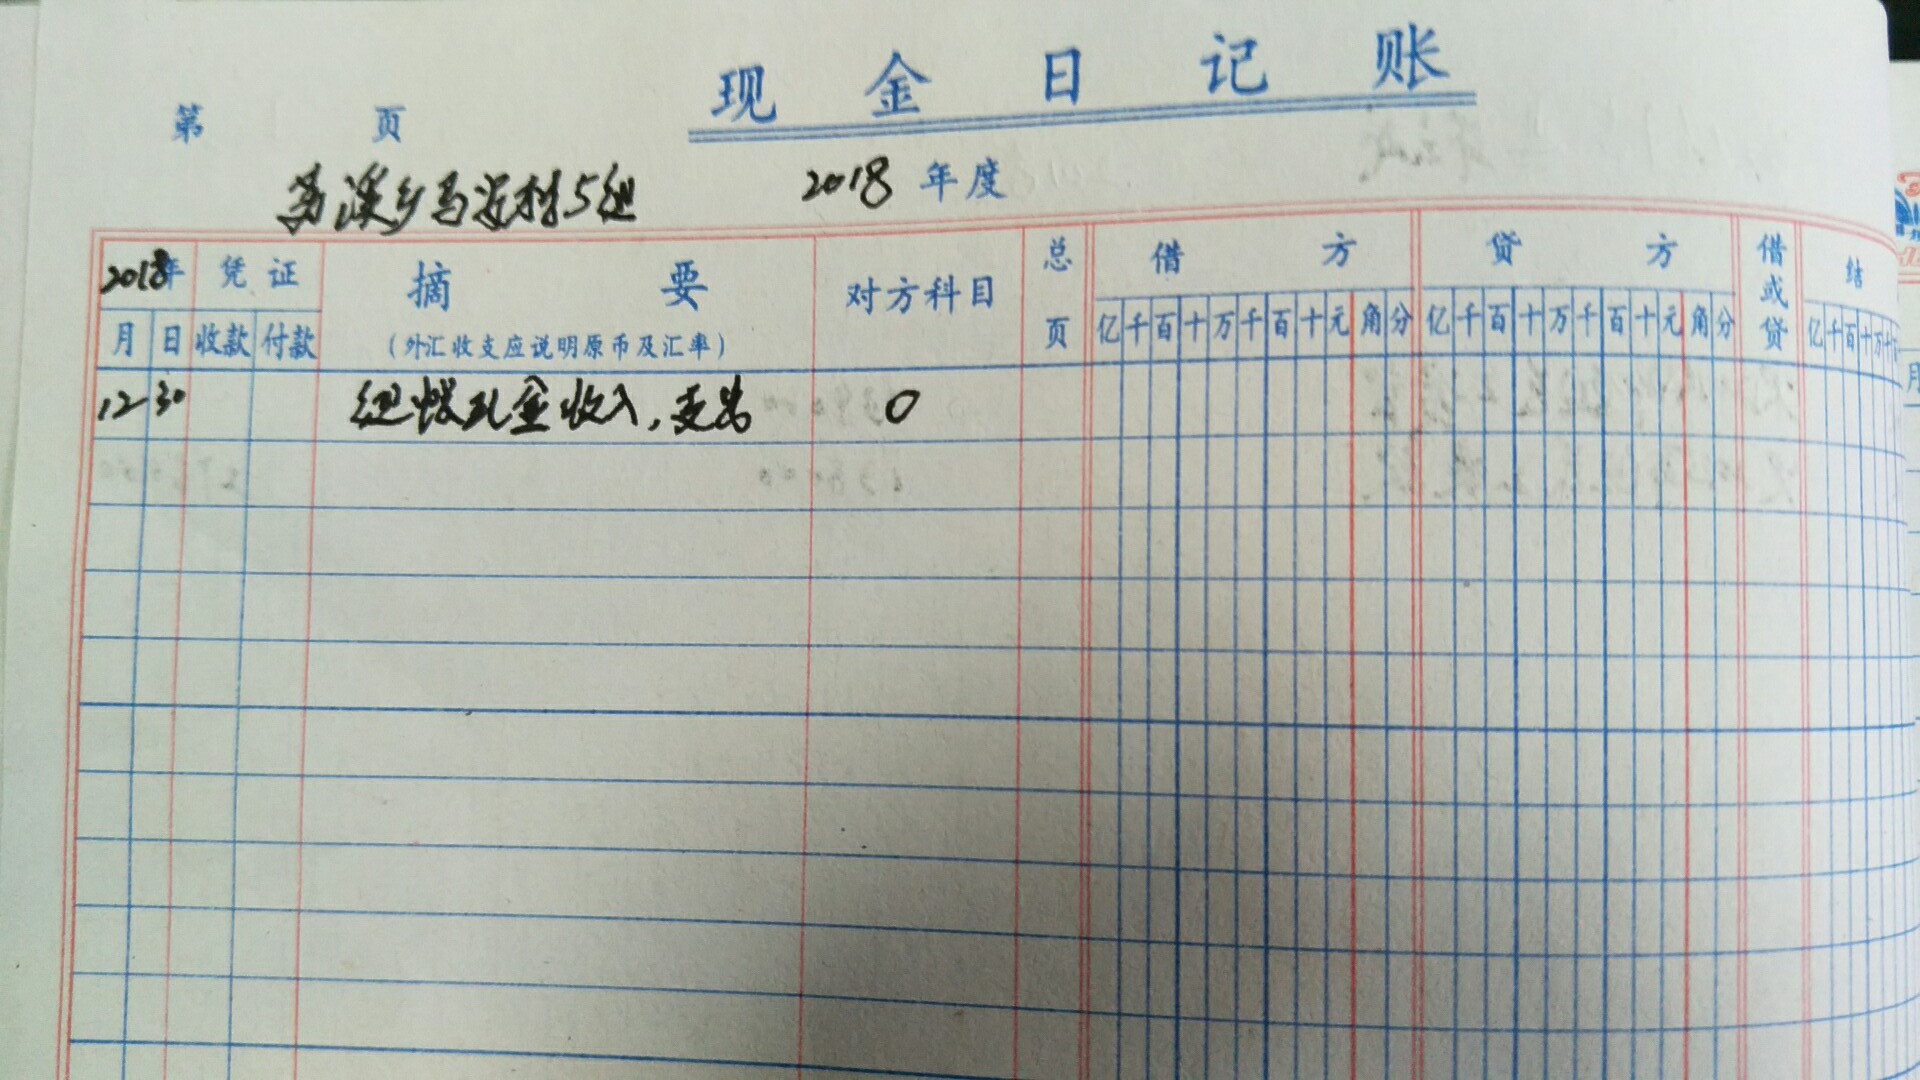 现金日记账
第 页
溪乡马 村5组 2018 年度
2018年 凭证 摘要 对方科目 总页 借方 贷方 借或贷 结
月 日 收款 付款 (外汇收支应说明原币及汇率) 亿千百十万千百十元角分 亿千百十万千百十元角分 亿千百十万千百
12 30 组 现金收入,支出 0